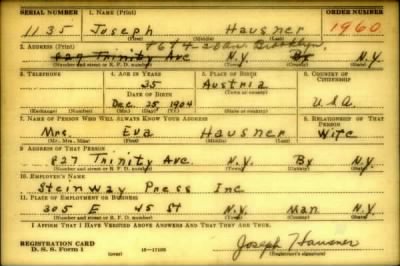 SERIAL NUMBER 1. NAME (Print) ORDER NUMBER
1135 Joseph Hausner 1960
(First) (Middle) (Last)
2. ADDRESS (Print) Brooklyn,
827 Trinity Ave N.Y. Bx N.Y.
(Number and street or R. F. D. number) (Town) (County) (State)
3. TELEPHONE 4. AGE IN YEARS 5. PLACE OF BIRTH 6. COUNTRY OF CITIZENSHIP
35 Austria
DATE OF BIRTH (Town or county)
Dec. 25, 1904 U.S.A.
(Exchange) (Number) (Mo.) (Day) (Yr.) (State or country)
7. NAME OF PERSON WHO WILL ALWAYS KNOW YOUR ADDRESS 8. RELATIONSHIP OF THAT PERSON
Mrs. Eva Hausner Wife
(Mr., Mrs., Miss) (First) (Middle) (Last)
9. ADDRESS OF THAT PERSON
827 Trinity Ave. N.Y. Bx N.Y.
(Number and street or R. F. D. number) (Town) (County) (State)
10. EMPLOYER'S NAME
Steinway Press Inc
11. PLACE OF EMPLOYMENT OR BUSINESS
305 E 45 St N.Y. Man N.Y.
(Number and street or R. F. D. number) (Town) (County) (State)
I AFFIRM THAT I HAVE VERIFIED ABOVE ANSWERS AND THAT THEY ARE TRUE.
REGISTRATION CARD Joseph Hausner
D. S. S. Form 1 (over) (Registrant's signature)